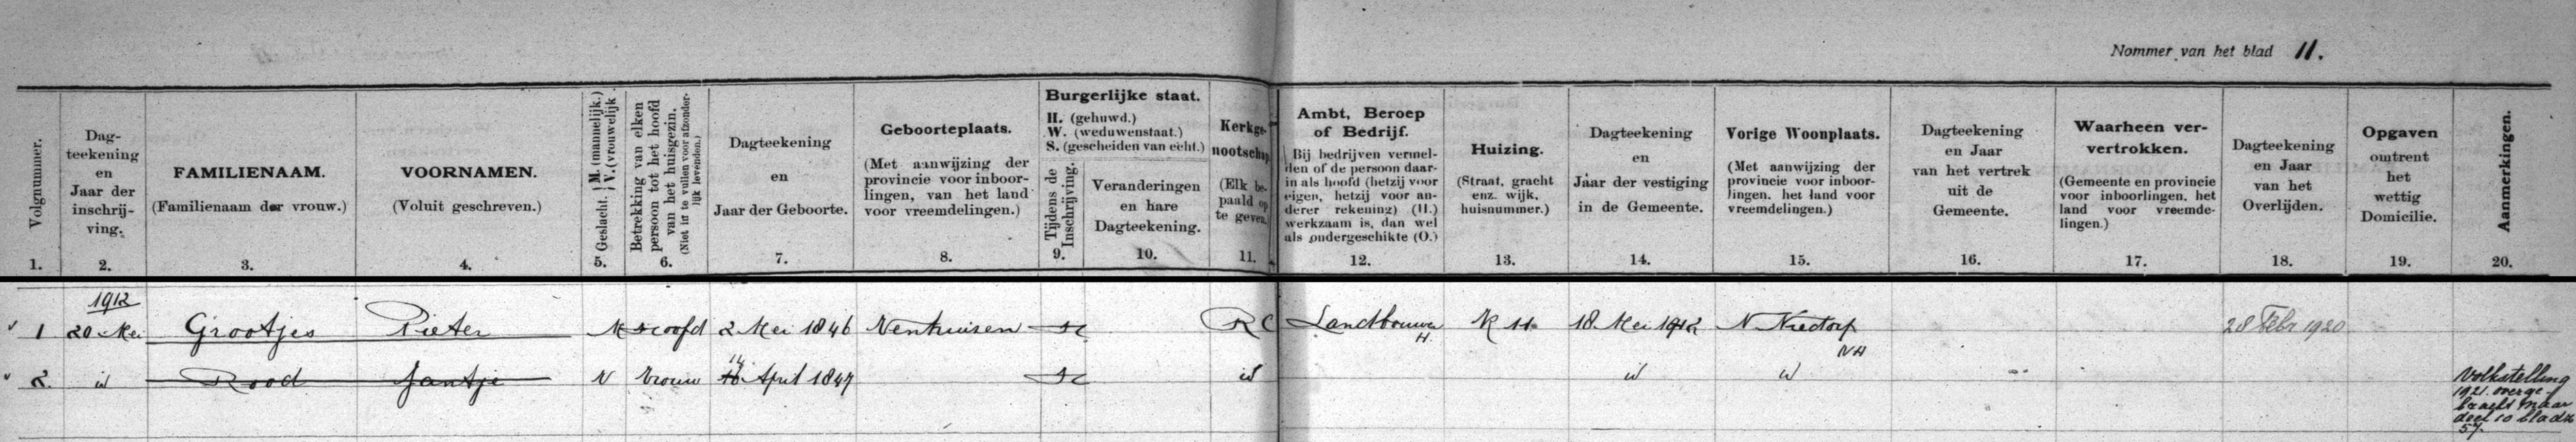 Nommer van het blad 11.
Volgnummer.
1.
Dag-
teekening
en
Jaar der
inschrij-
ving.
2.
FAMILIENAAM.
(Familienaam der vrouw.)
3.
VOORNAMEN.
(Voluit geschreven.)
4.
Geslacht. { M. (mannelijk.)
V. (vrouwelijk
5.
Betrekking van elken
persoon tot het hoofd
van het huisgezin.
(Niet in te vullen voor afzonder-
lijk levenden.)
6.
Dagteekening
en
Jaar der Geboorte.
7.
Geboorteplaats.
(Met aanwijzing der
provincie voor inboor-
lingen, van het land
voor vreemdelingen.)
8.
Burgerlijke staat.
H. (gehuwd.)
W. (weduwenstaat.)
S. (gescheiden van echt.)
Tijdens de
Inschrijving.
9.
Veranderingen
en hare
Dagteekening.
10.
Kerkge-
nootschap.
(Elk be-
paald op
te geven.)
11.
Ambt, Beroep
of Bedrijf.
Bij bedrijven vermel-
den of de persoon daar-
in als hoofd (hetzij voor
eigen, hetzij voor an-
derer rekening) (H.)
werkzaam is, dan wel
als ondergeschikte (O.)
12.
Huizing.
(Straat, gracht
enz. wijk,
huisnummer.)
13.
Dagteekening
en
Jaar der vestiging
in de Gemeente.
14.
Vorige Woonplaats.
(Met aanwijzing der
provincie voor inboor-
lingen. het land voor
vreemdelingen.)
15.
Dagteekening
en Jaar
van het vertrek
uit de
Gemeente.
16.
Waarheen ver-
vertrokken.
(Gemeente en provincie
voor inboorlingen, het
land voor vreemde-
lingen.)
17.
Dagteekening
en Jaar
van het
Overlijden.
18.
Opgaven
omtrent
het
wettig
Domicilie.
19.
Aanmerkingen.
20.
1912
1 20 Mei Grootjes Pieter M Hoofd 2 Mei 1846 Venhuisen H RC Landbouwer H. K 11 18 Mei 1912 N Niedorp NH 28 Febr 1920
2. id Rood Jantje V Vrouw 14 April 1847 H id id id
Volkstelling
1921 overge-
bracht naar
deel 10 bladz
57.